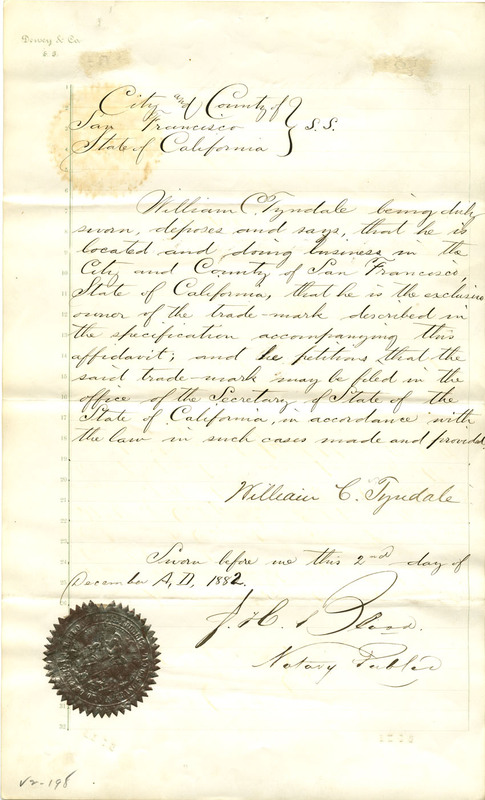 Dewey & Co
City and County of
San Francisco
State of California
} S.S.
William C. Tyndale being duly
sworn, deposes and says, that he is
located and doing business in the
City and County of San Francisco,
State of California, that he is the exclusive
owner of the trade-mark described in
the specification accompanying this
affidavit; and he petitions that the
said trade-mark may be filed in the
office of the Secretary of State of the
State of California, in accordance with
the law in such cases made and provided.
William C. Tyndale
Sworn before me this 2nd day of
December A.D. 1882.
J. H. Blood.
Notary Public